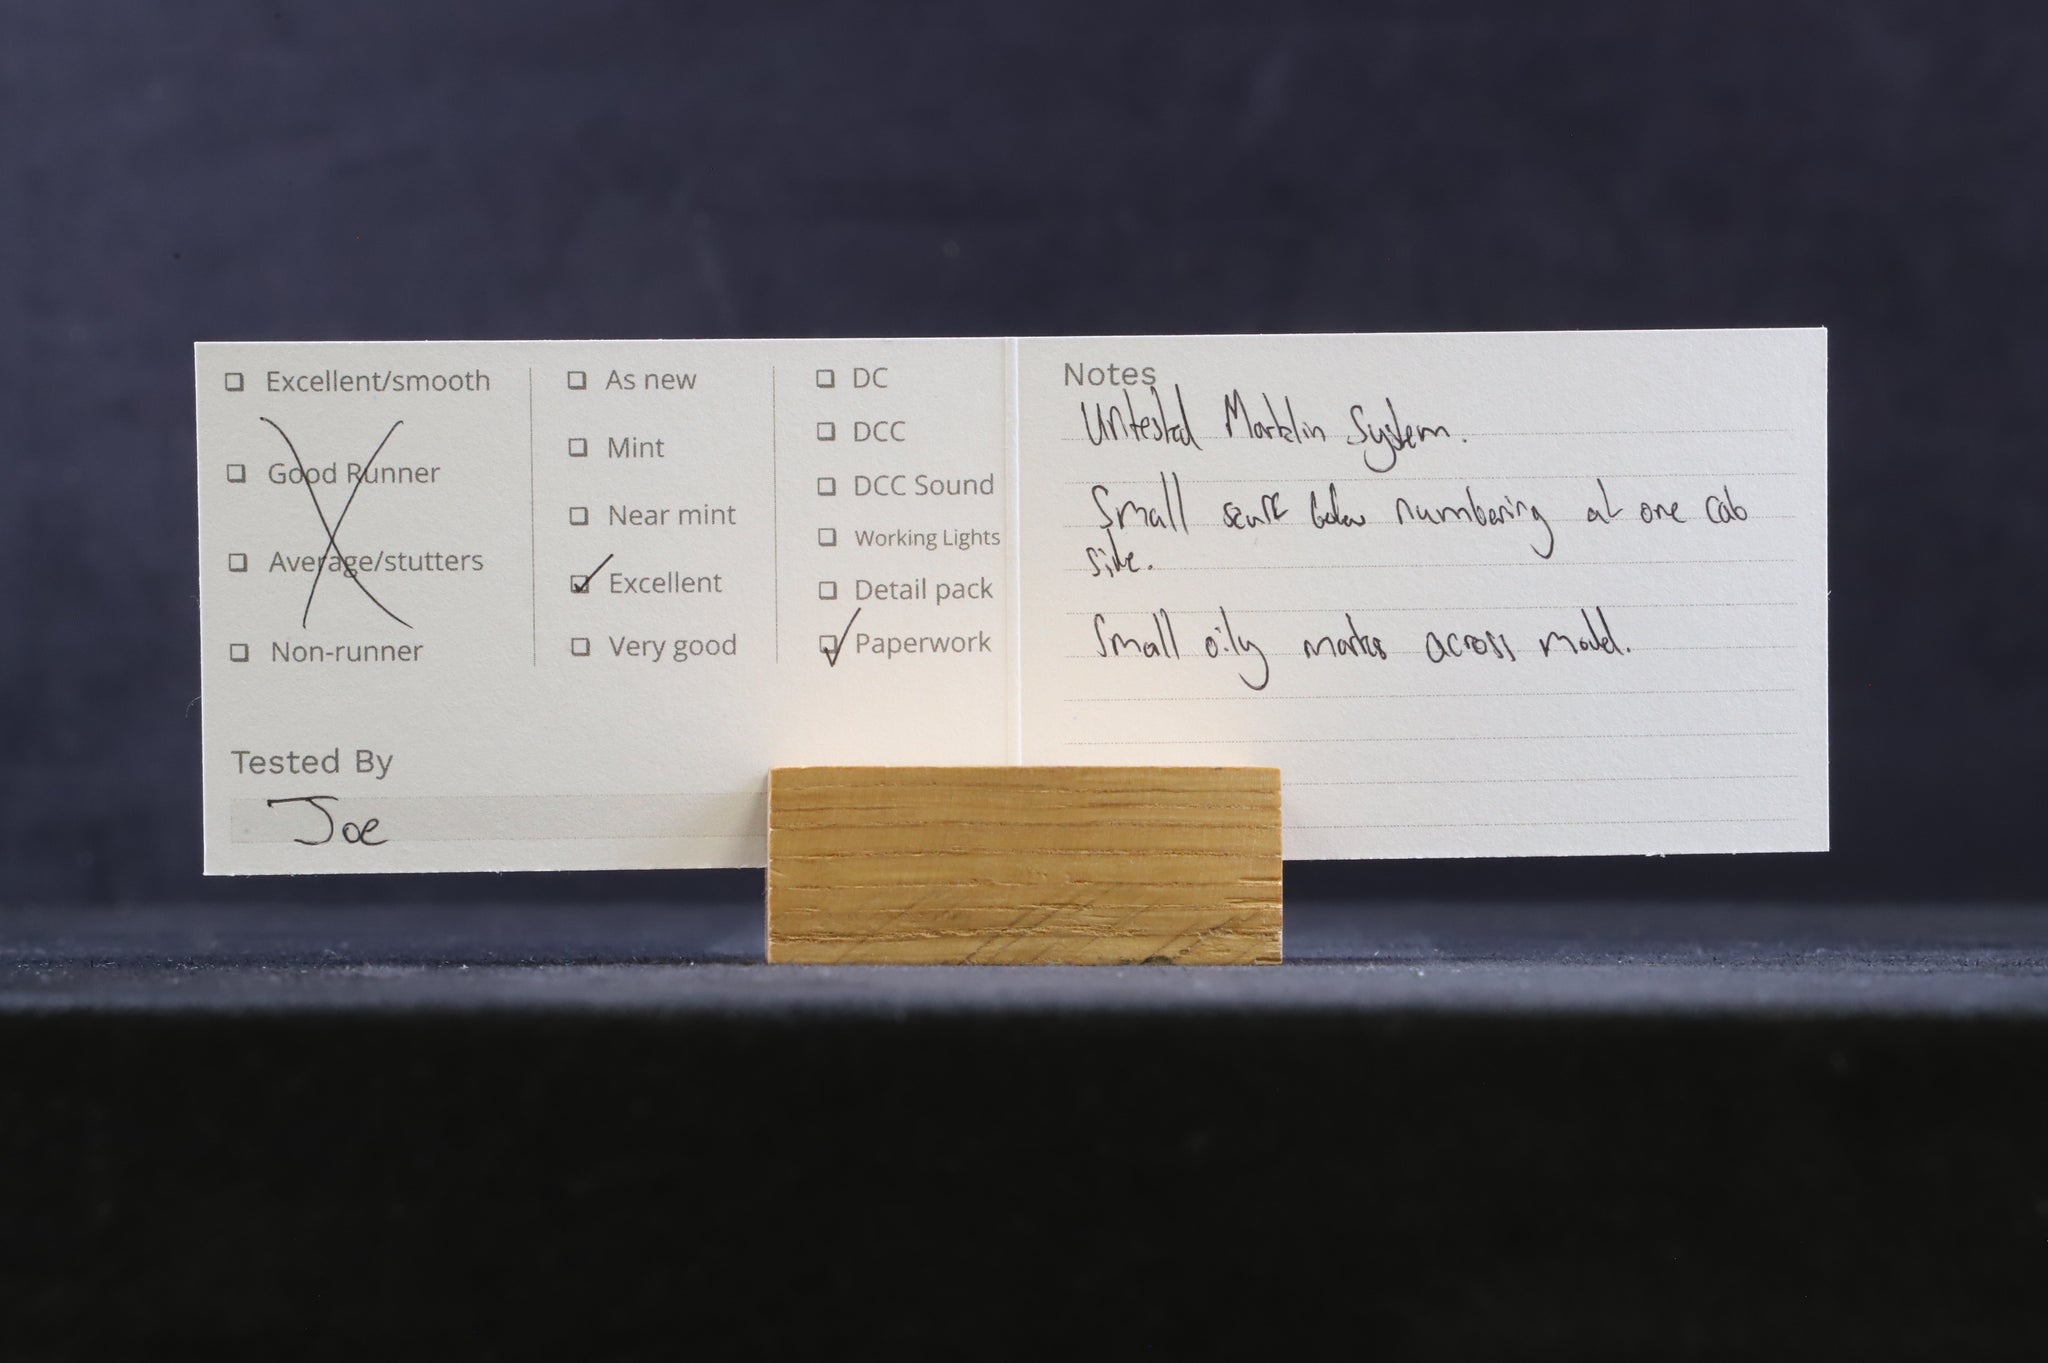 Excellent/smooth
Good Runner
Average/stutters
Non-runner
As new
Mint
Near mint
Excellent
Very good
DC
DCC
DCC Sound
Working Lights
Detail pack
Paperwork
Tested By
Joe
Notes
Untested Marklin System.
Small scuff below numbering at one cab
side.
Small oily marks across model.